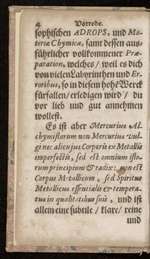 4 Vorrede.
sophischen ADROPS, und Ma-
teria Chymica, samt dessen aus-
führlicher vollkommener Præ-
paration, welches / weil es dich
von vielen Labyrinthen und Er-
roribus, so in diesem hohe Werck
fürfallen / erledigen wird / Du
vor lieb und gut annehmen
wollest.
Es ist aber Mercurius Al-
chymistarum non Mercurius vul-
gi nec alicujus Corporis ex Metallis
imperfectis, sed est omnium isto-
rum principium & radix; non est
Corpus Metallicum, sed Spiritus
Metallicus essentialis & tempera-
tus in qualitatibus suis, und ist
allein eine subtile / klare / reine
und